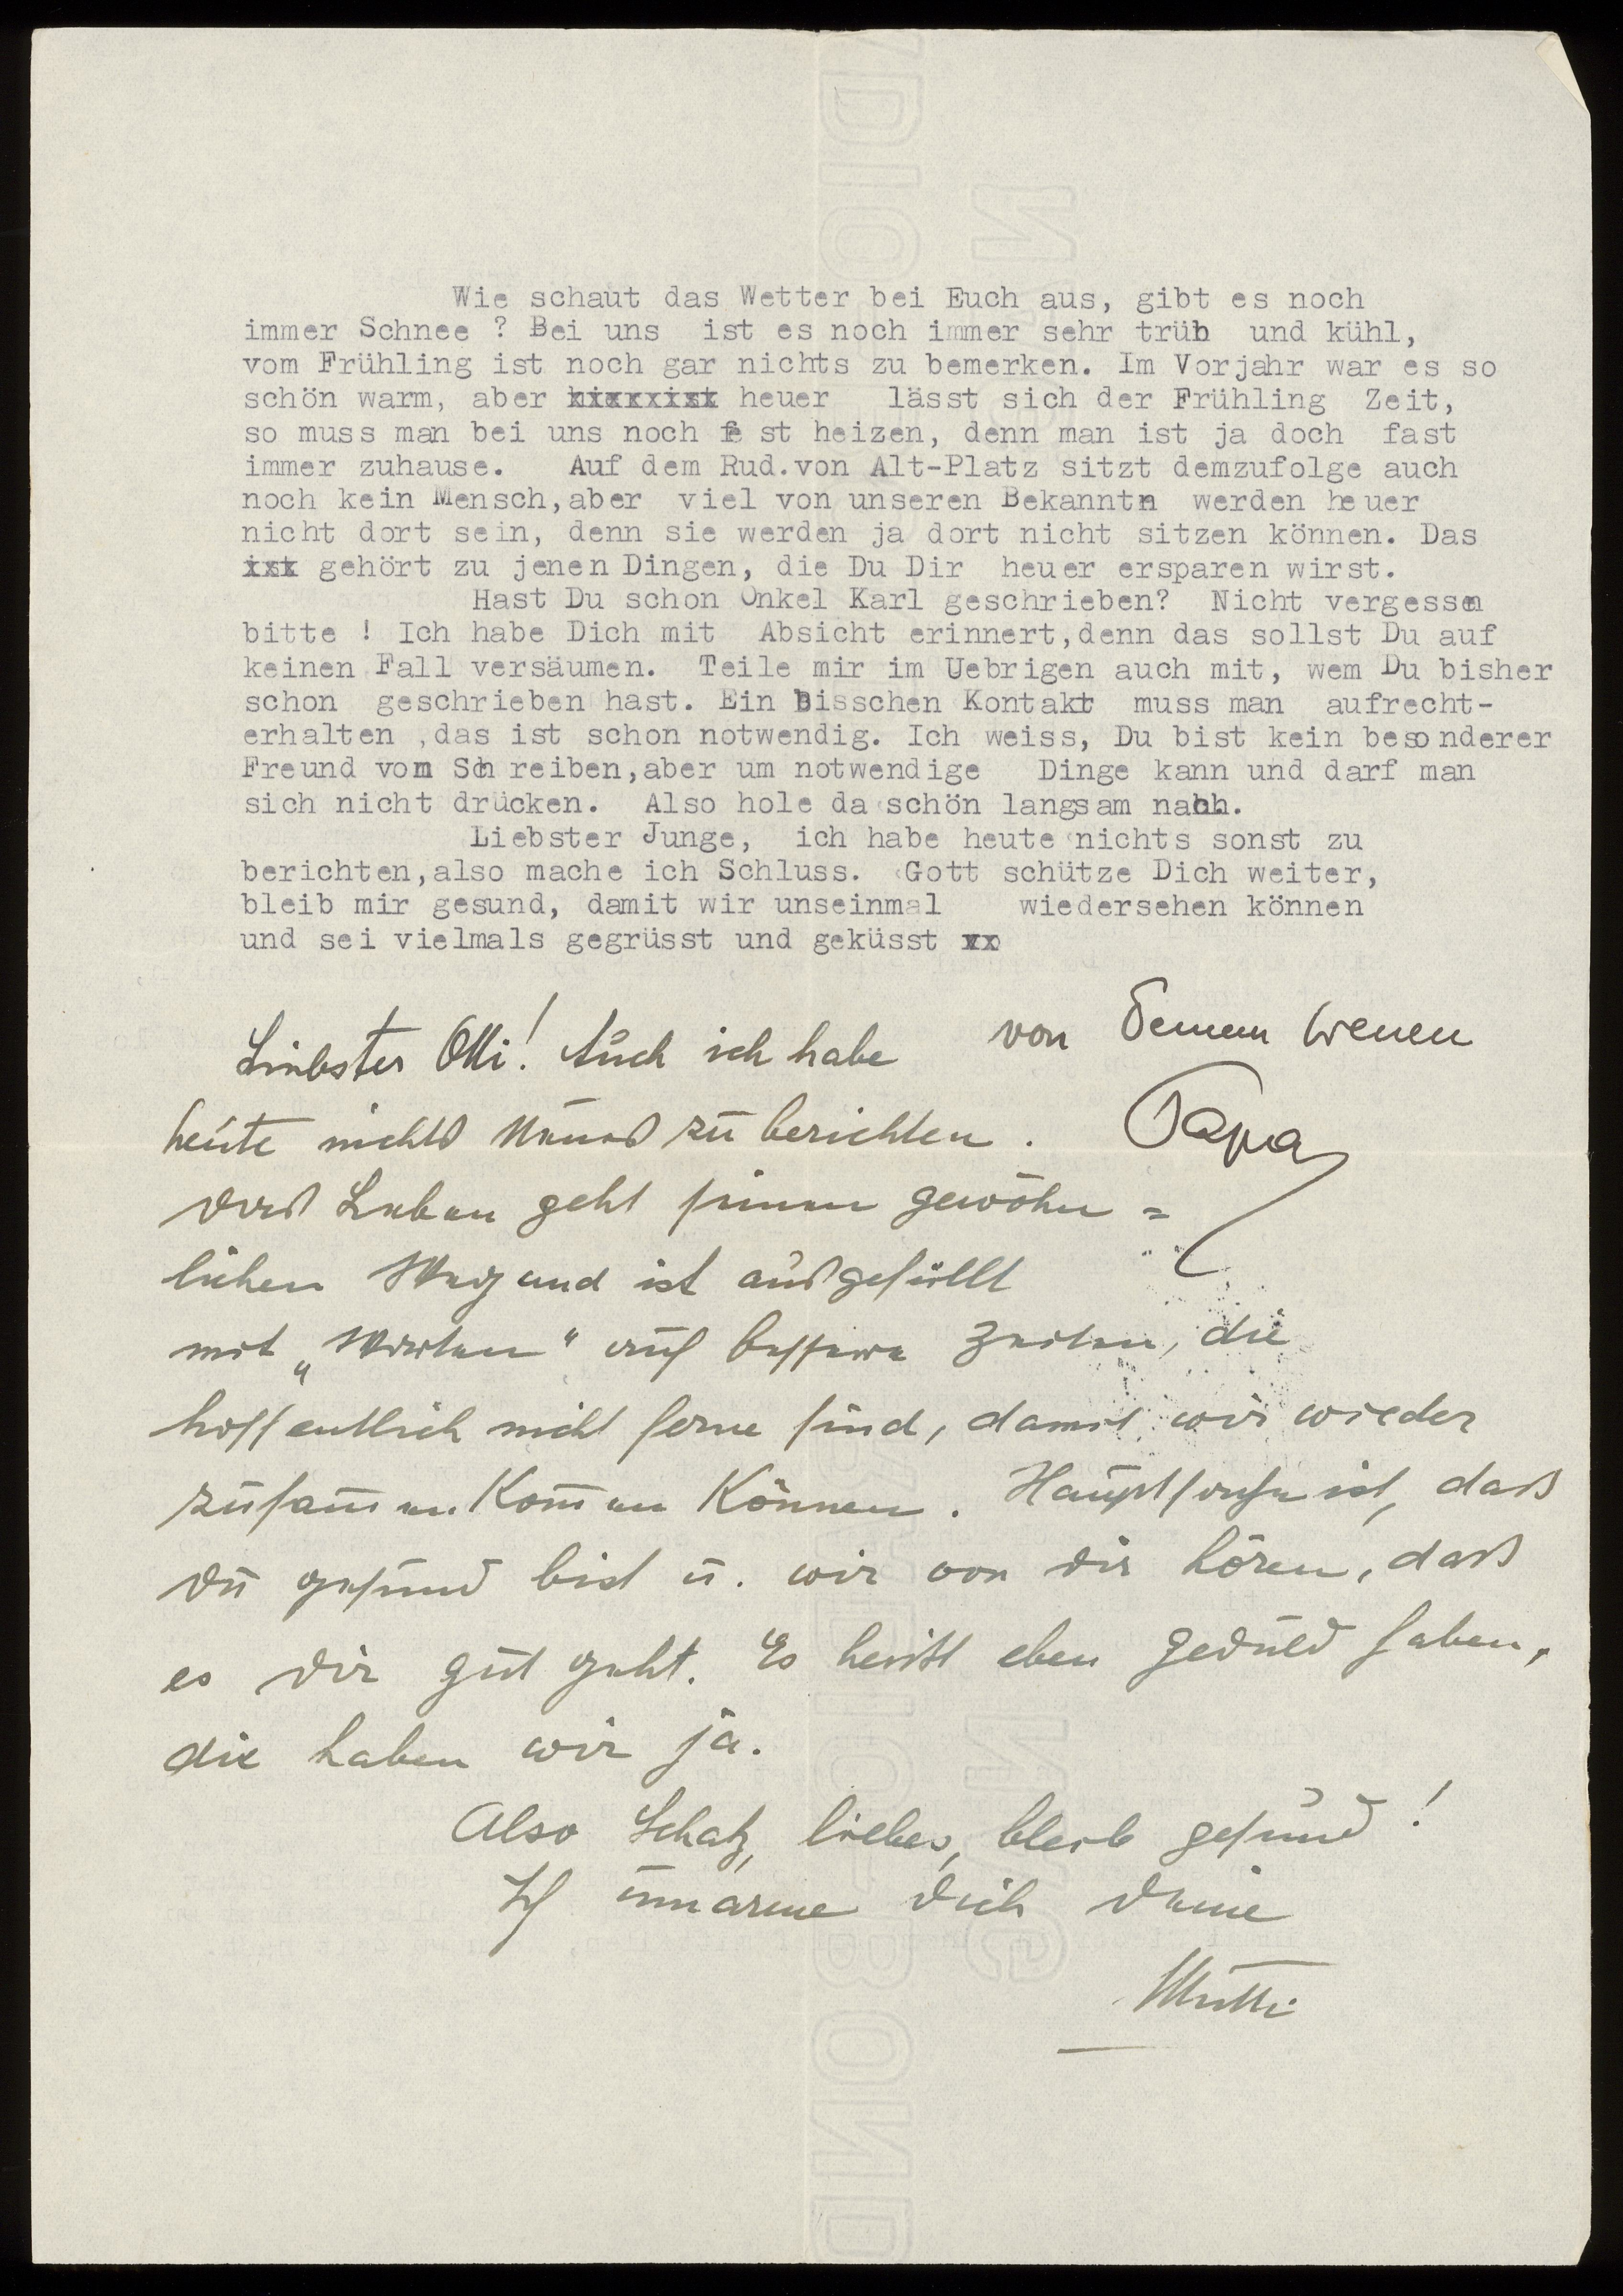 Wie schaut das Wetter bei Euch aus, gibt es noch
immer Schnee ? Bei uns ist es noch immer sehr trüb und kühl,
vom Frühling ist noch gar nichts zu bemerken. Im Vorjahr war es so
schön warm, aber heuer lässt sich der Frühling Zeit,
so muss man bei uns noch fe st heizen, denn man ist ja doch fast
immer zuhause. Auf dem Rud.von Alt-Platz sitzt demzufolge auch
noch kein Mensch,aber viel von unseren Bekanntn werden heuer
nicht dort sein, denn sie werden ja dort nicht sitzen können. Das
gehört zu jenen Dingen, die Du Dir heuer ersparen wirst.
Hast Du schon Onkel Karl geschrieben? Nicht vergessen
bitte ! Ich habe Dich mit Absicht erinnert,denn das sollst Du auf
keinen Fall versäumen. Teile mir im Uebrigen auch mit, wem Du bisher
schon geschrieben hast. Ein Bisschen Kontakt muss man aufrecht-
erhalten ,das ist schon notwendig. Ich weiss, Du bist kein besonderer
Freund vom Sch reiben,aber um notwendige Dinge kann und darf man
sich nicht drücken. Also hole da schön langsam nach.
Liebster Junge, ich habe heute nichts sonst zu
berichten,also mache ich Schluss. Gott schütze Dich weiter,
bleib mir gesund, damit wir unseinmal wiedersehen können
und sei vielmals gegrüsst und geküsst
von Deinem treuen
Papa
Liebster Olli! Auch ich habe
heute nichts Neues zu berichten.
Das Leben geht seinen gewöhn=
lichen Weg und ist ausgefüllt
mit „Warten“ auf bessere Zeiten, die
hoffentlich nicht ferne sind, damit wir wieder
zusam̅en kom̅en können. Hauptsache ist, daß
Du gesund bist u. wir von Dir hören, daß
es Dir gut geht. Es heißt eben Geduld haben,
die haben wir ja.
Also Schatz, liebes, bleib gesund!
Ich umarme Dich Deine
Mutti
RADIO-BOND